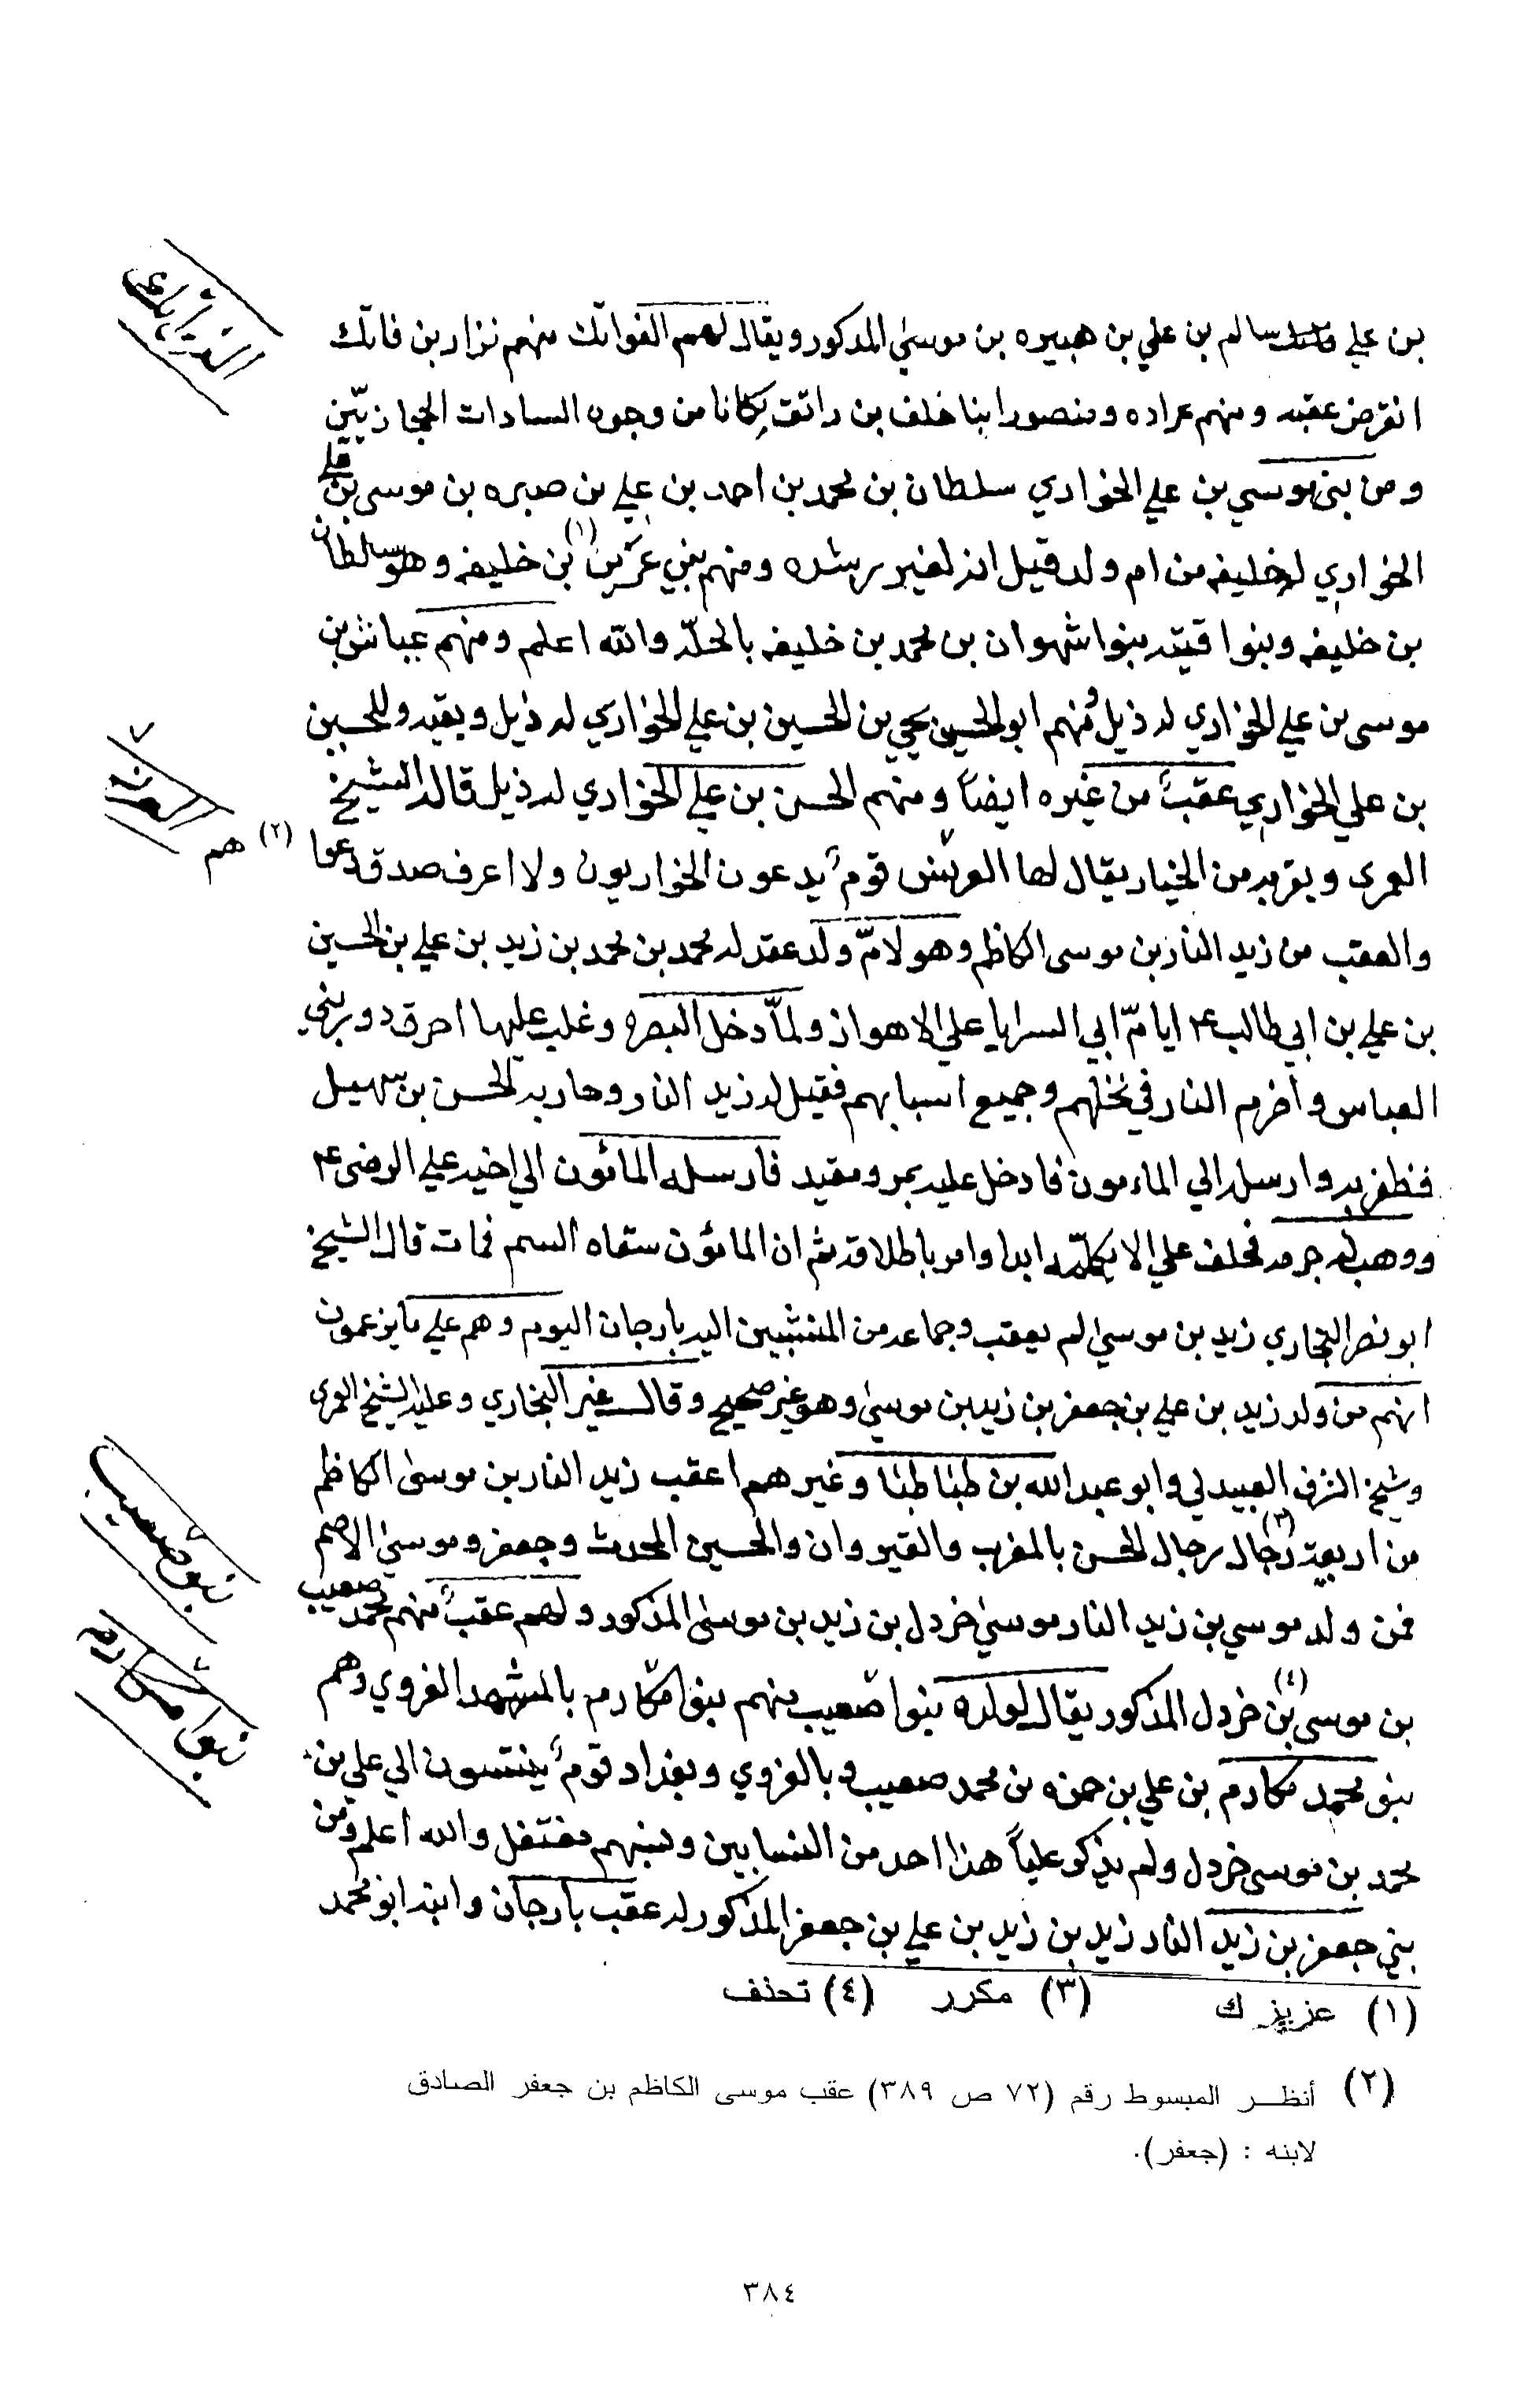 بن علي سالم بن علي بن هبيره بن موسي المذكور ويقال لهم الفواتك منهم نزار بن فاتك
انقرض عقبه ومنهم عراده ومنصور ابنا خلف بن راتق كانا من وجوه السادات الحجازيّين
ومن بني موسي بن علي الخواري سلطان بن محمد بن احمد بن علي بن صبره بن موسى بن علي
الخواري له خليفه من ام ولد قيل انه لغير رشده ومنهم بني عزيز (١) بن خليفه وهو سلطان
بن خليفه وبنوا قيته بنوا شهوان بن محمد بن خليفه بالحلّه والله اعلم ومنهم عياش بن
موسى بن علي الخواري له ذيل ومنهم ابو الحسين يحيي بن الحسين بن علي الخواري له ذيل وبقيه وللحسين
بن علي الخواري عقبٌ من غيره ايضاً ومنهم الحسن بن علي الخواري له ذيل قال الشيخ
العمرى وبقريه من الخيار يقال لها العريش قومٌ يدعون الخواريون ولا اعرف صدق دعوا (٢) هم
والعقب من زيد النار بن موسى الكاظم وهو لامّ ولد عقد له محمد بن محمد بن زيد بن علي بن الحسين
بن علي بن ابي طالب ع ايامّ ابي السرايا علي الاهواز ولمّا دخل البصره وغلب عليها احرق دور بني
العباس واضرم النار في نخلهم وجميع اسبابهم فقيل له زيد النار وحاربه الحسن بن سهيل
فظفر به وارسله الي الماءمون فادخل عليه بمرو مقيد فارسله المائون الي اخيه علي الرضى ع
ووهب له جرمه فحلف علي الا يكلمّه ابدا وامر باطلاقه ثم ان المائون سقاه السم فمات قال الشيخ
ابو نصر البخاري زيد بن موسي لم يعقب وجماعه من المنتسبين اليه بارجان اليوم وهم علي ما يزعمون
انهم من ولد زيد بن علي بن جعفر بن زيد بن موسي وهو غير صحيح وقال غير البخاري وعليه الشيخ العمرى
وشيخ الشرف العبيدلي وابو عبد الله بن طباطبا وغيرهم اعقب زيد النار بن موسى الكاظم
من اربعة رجال (٣) رجال الحسن بالمغرب والقيروان والحسين المحدث وجعفر وموسي الاصم
فمن ولد موسي بن زيد النار موسي خردل بن زيد بن موسى المذكور ولهم عقبٌ منهم محمد صعيب
بن موسى (٤) بن خردل المذكور يقال لولده بنوا صعيب منهم بنوا مكارم بالمشهد الغروي وهم
بنو محمد مكارم بن علي بن حمزه بن محمد صعيب وبالغروي وبغداد قومٌ ينتسبون الي علي بن
محمد بن موسى خردل ولم يذكر علياً هذا احد من النسابين ونسبهم مفتعل والله اعلم ومن
بني جعفر بن زيد النار زيد بن زيد بن علي بن جعفر المذكور له عقب بارجان وابنه ابو محمد
الفواتك
العرش
بنو صعيب
بنوا مكارم
(١) عزيز ك (٣) مكرر (٤) تحذف
(٢) أنظر المبسوط رقم (٧٢ ص ٣٨٩) عقب موسى الكاظم بن جعفر الصادق
لابنه : (جعفر).
٣٨٤